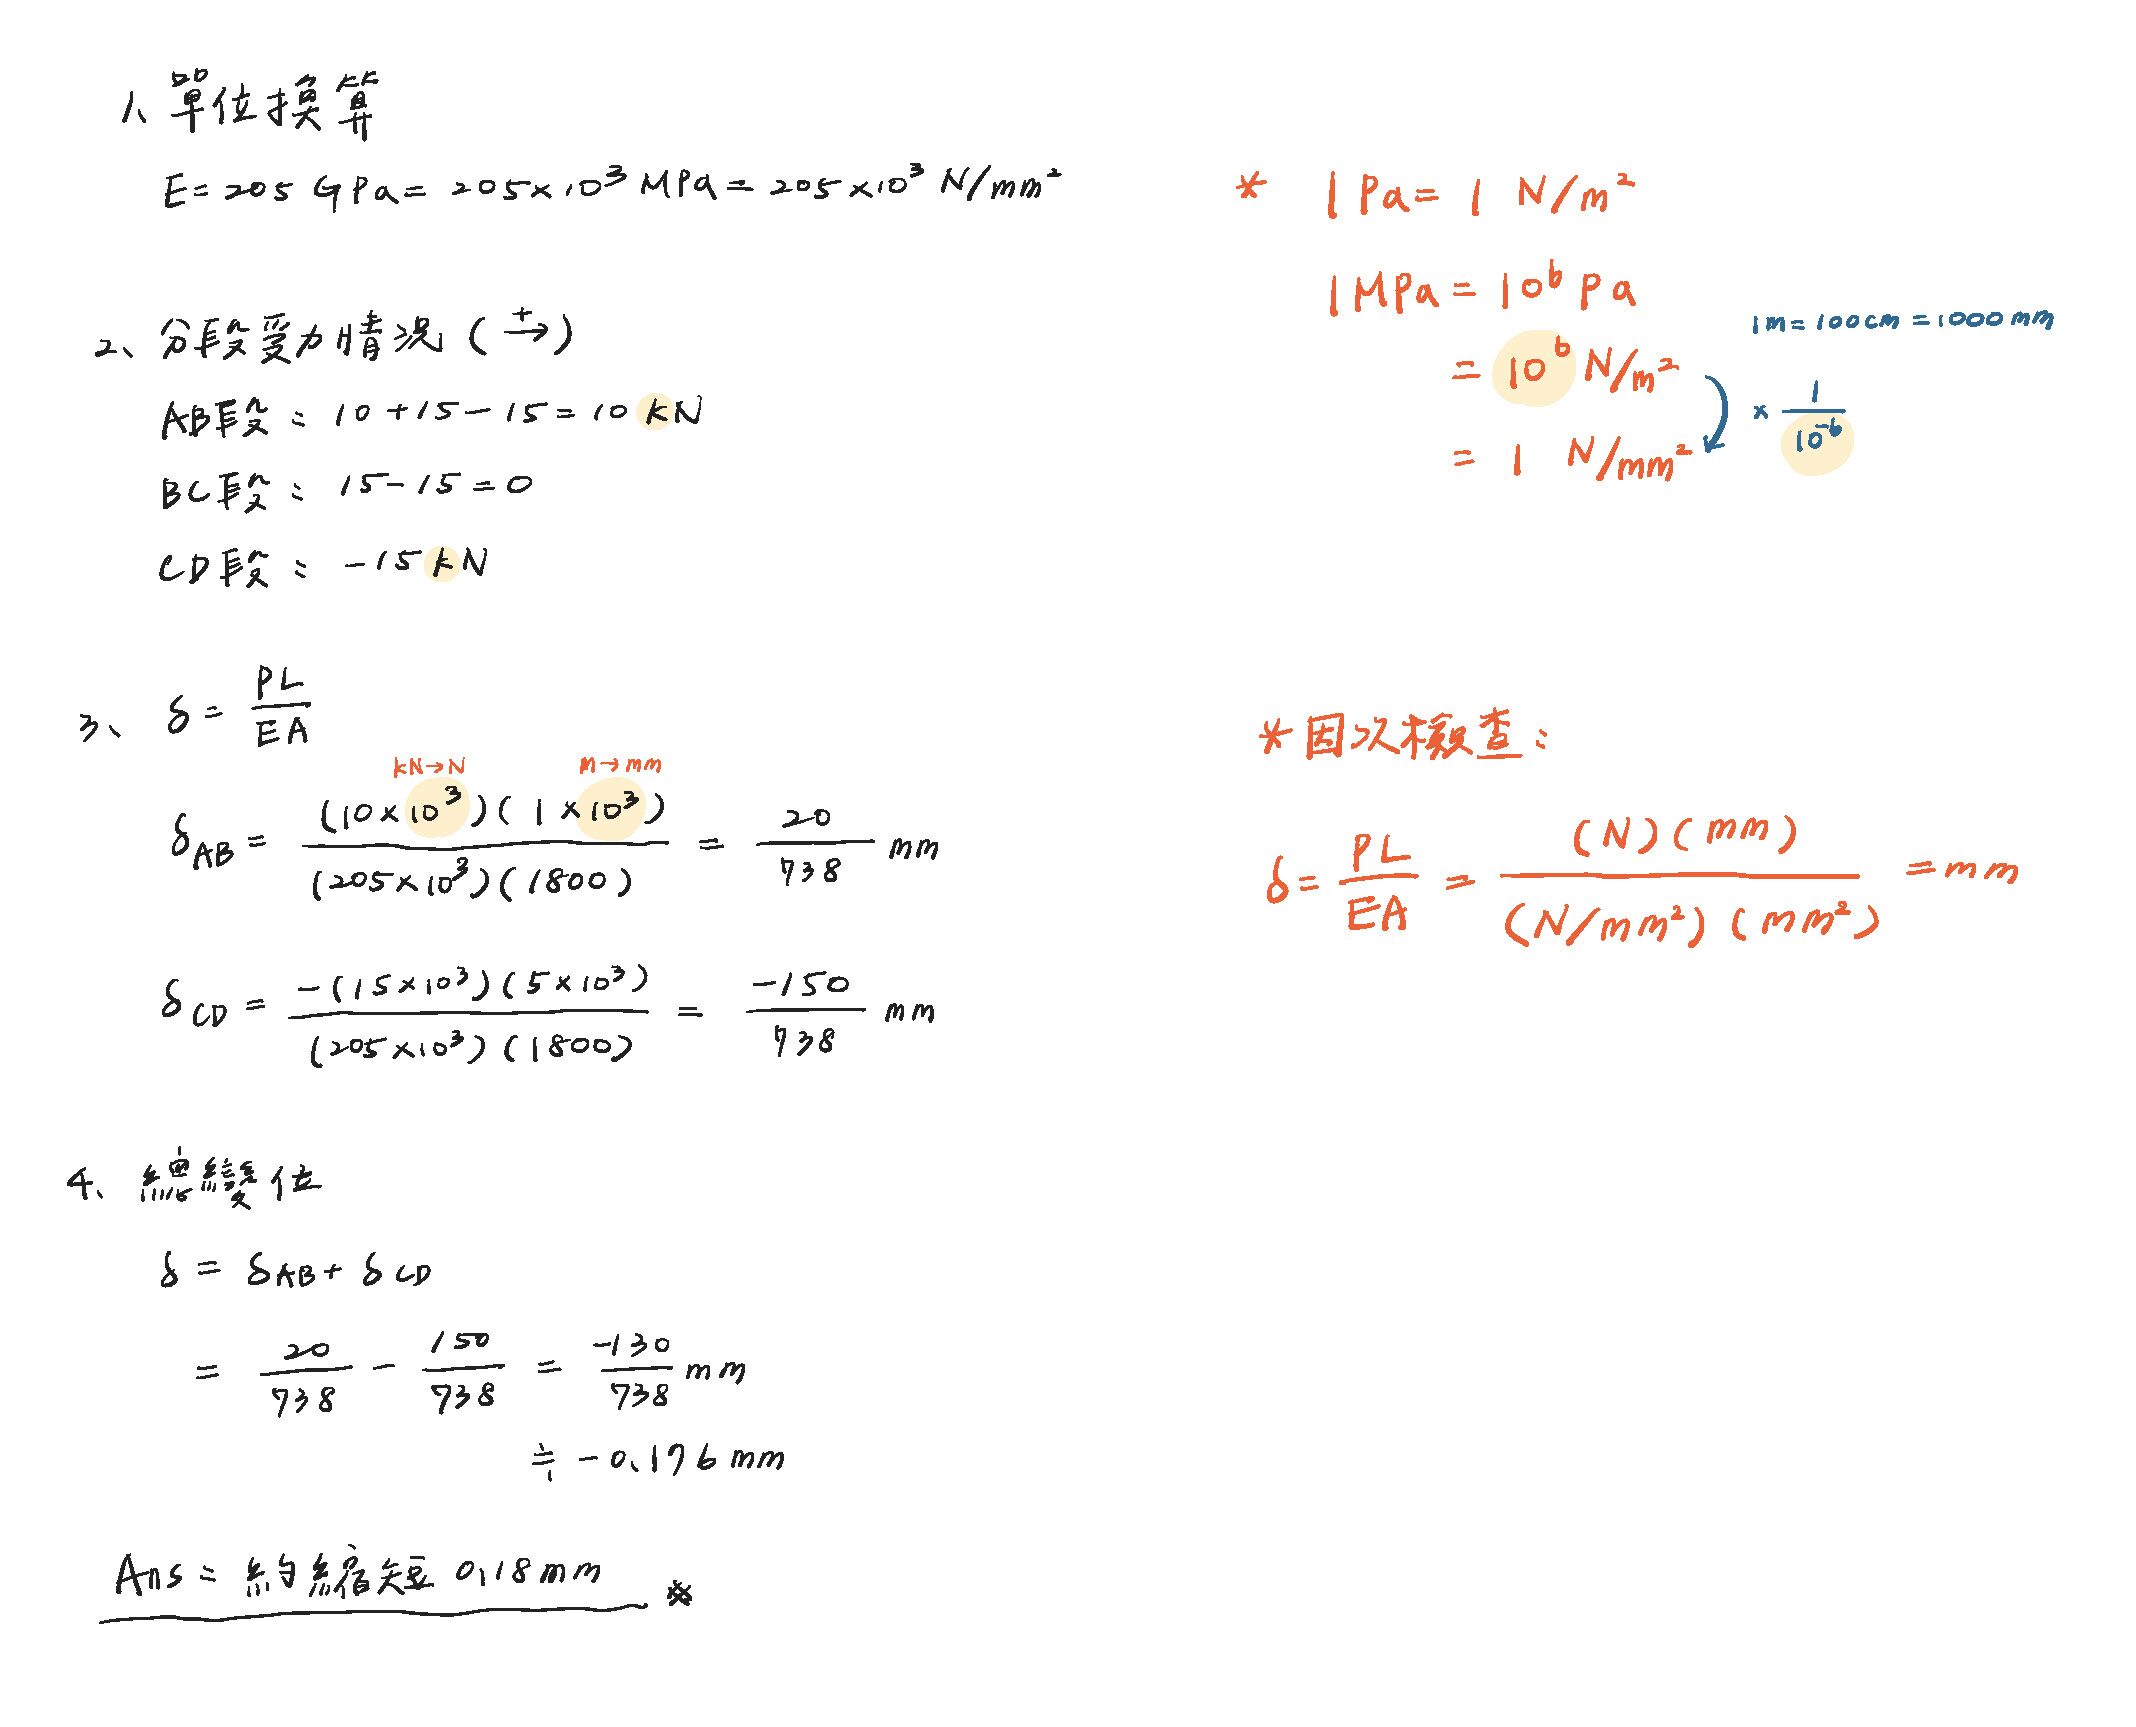 1、單位換算
E = 205 GPa = 205×10³ MPa = 205×10³ N/mm²
2、分段受力情況 (→⁺)
AB段: 10+15-15=10 kN
BC段: 15-15=0
CD段: -15 kN
3、 δ = PL/EA
kN→N m→mm
δAB = (10×10³)(1×10³)/(205×10³)(1800) = 20/738 mm
δCD = -(15×10³)(5×10³)/(205×10³)(1800) = -150/738 mm
4、總變位
δ = δAB + δCD
= 20/738 - 150/738 = -130/738 mm
≒ -0.176 mm
Ans: 約縮短 0.18mm
* 1 Pa = 1 N/m²
1 MPa = 10⁶ Pa
= 10⁶ N/m²
= 1 N/mm²
1m = 100cm = 1000mm
× 1/10⁻⁶
*因次檢查:
δ = PL/EA = (N)(mm)/(N/mm²)(mm²) = mm